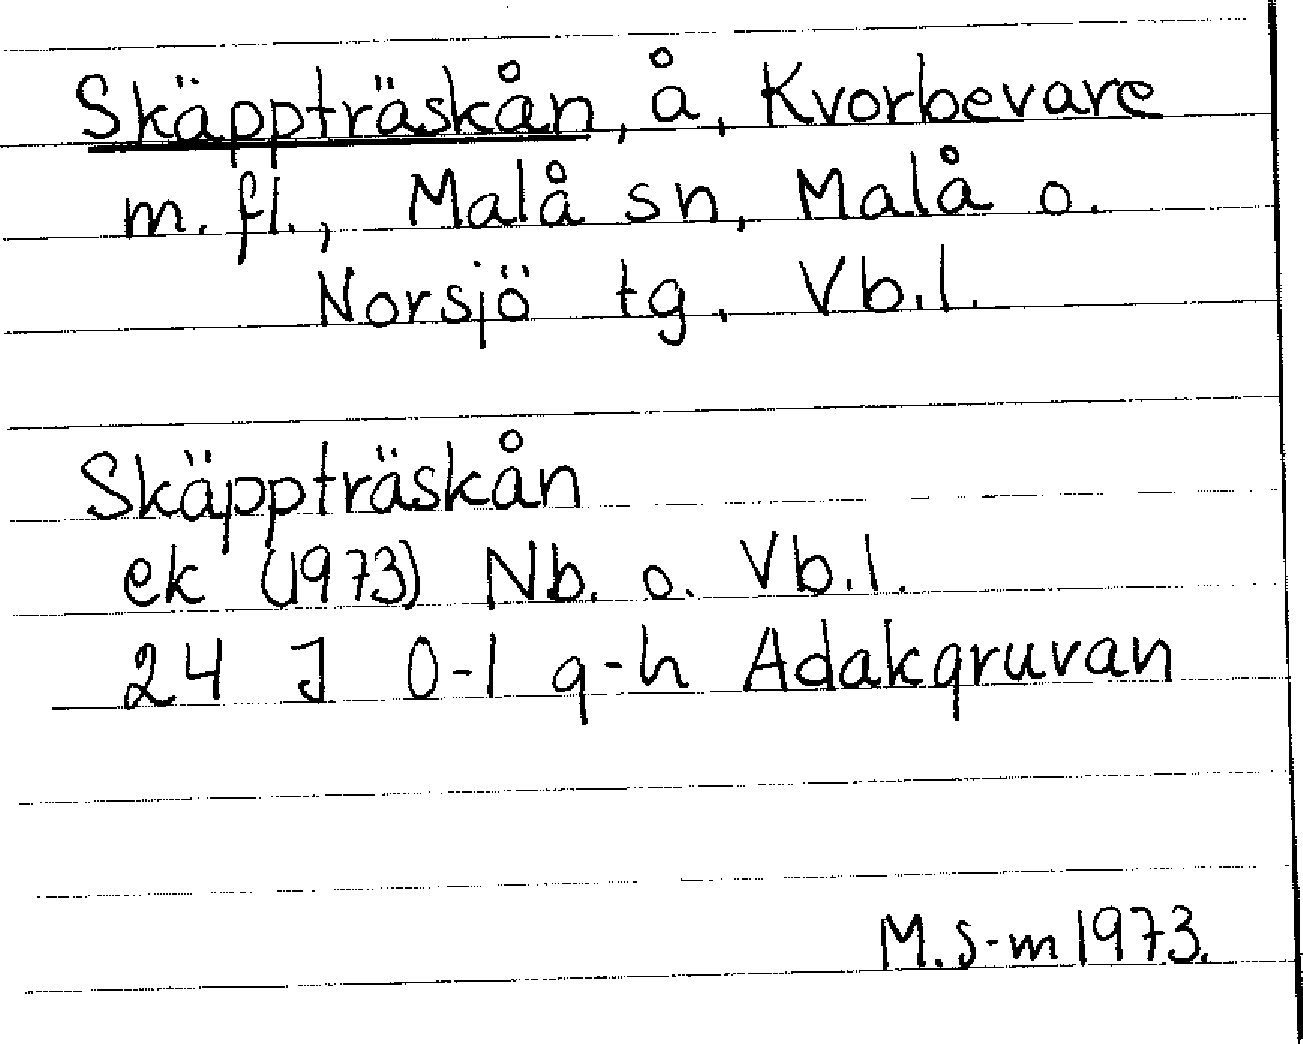 Skäppträskån, å, Kvorbevare
m. fl., Malå sn, Malå o.
Norsjö tg, Vb.l.
Skäppträskån
ek (1973) Nb. o. Vb.l.
24 J 0-1 g-h Adakgruvan
M.S-m 1973.